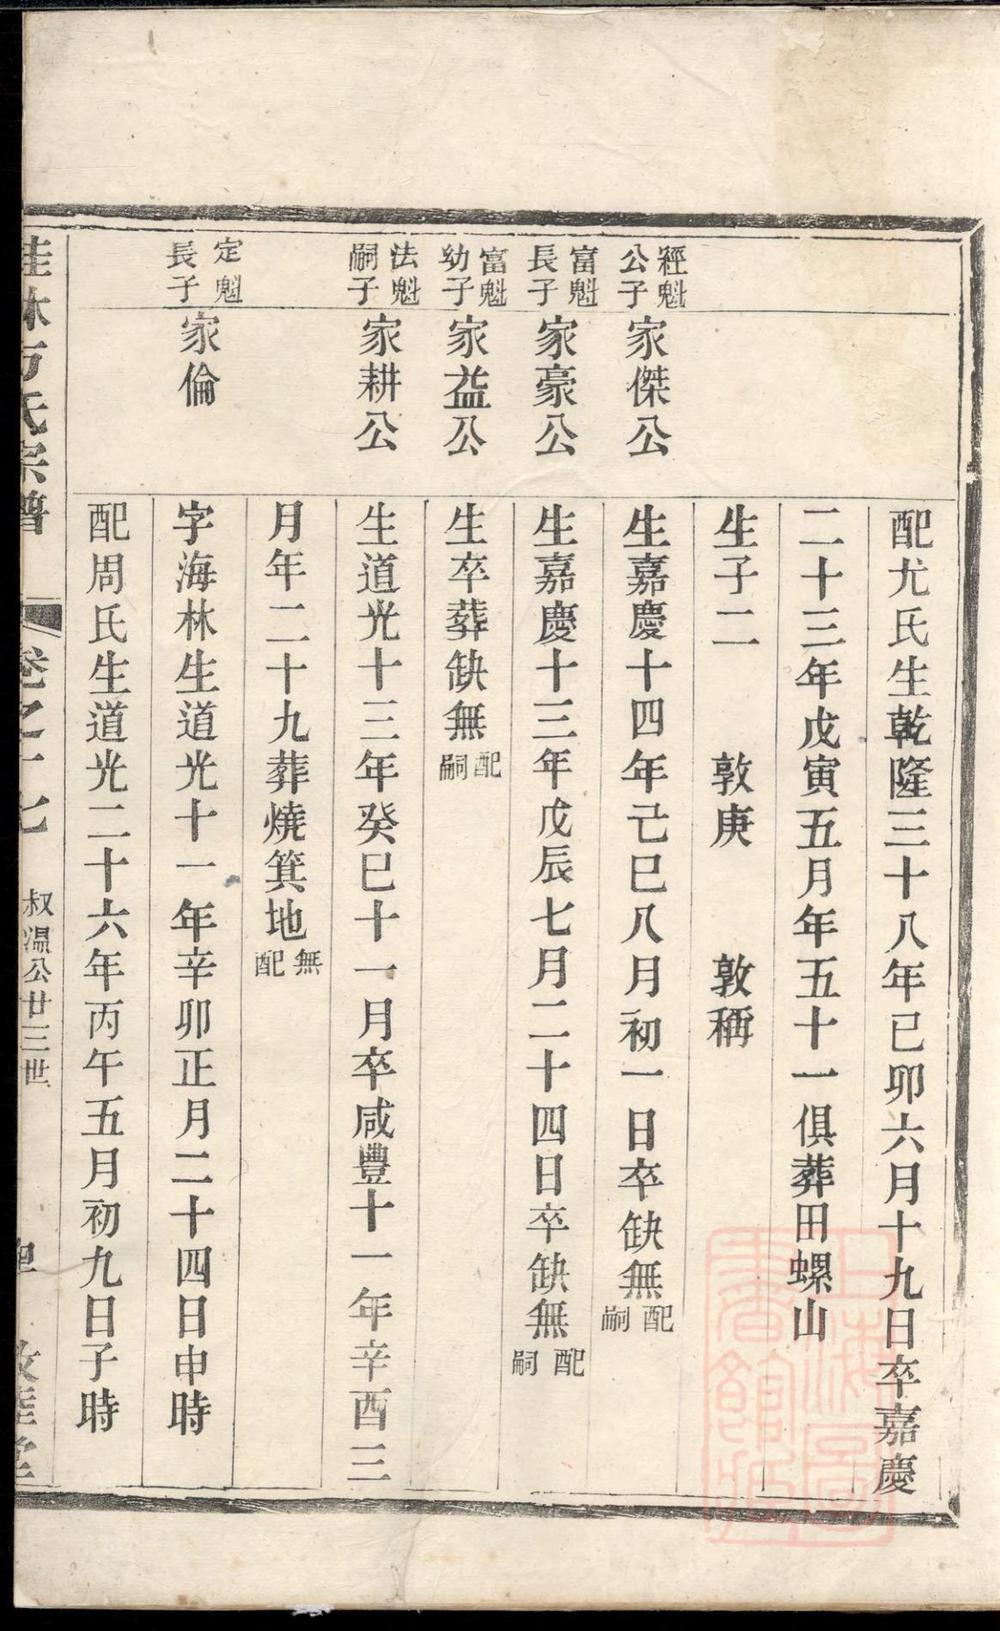 配尤氏生乾隆三十八年己卯六月十九日卒嘉慶
二十三年戊寅五月年五十一俱葬田螺山
生子二　敦庚　敦稱
經魁公子
家傑公
生嘉慶十四年己巳八月初一日卒缺無配嗣
富魁長子
家豪公
生嘉慶十三年戊辰七月二十四日卒缺無配嗣
富魁幼子
家益公
生卒葬缺無配嗣
法魁嗣子
家耕公
生道光十三年癸巳十一月卒咸豐十一年辛酉三
月年二十九葬燒箕地無配
定魁長子
家倫
字海林生道光十一年辛卯正月二十四日申時
配周氏生道光二十六年丙午五月初九日子時
桂林方氏宗譜
卷之十七
叔溫公廿三世
敦睦堂
上海圖書館藏